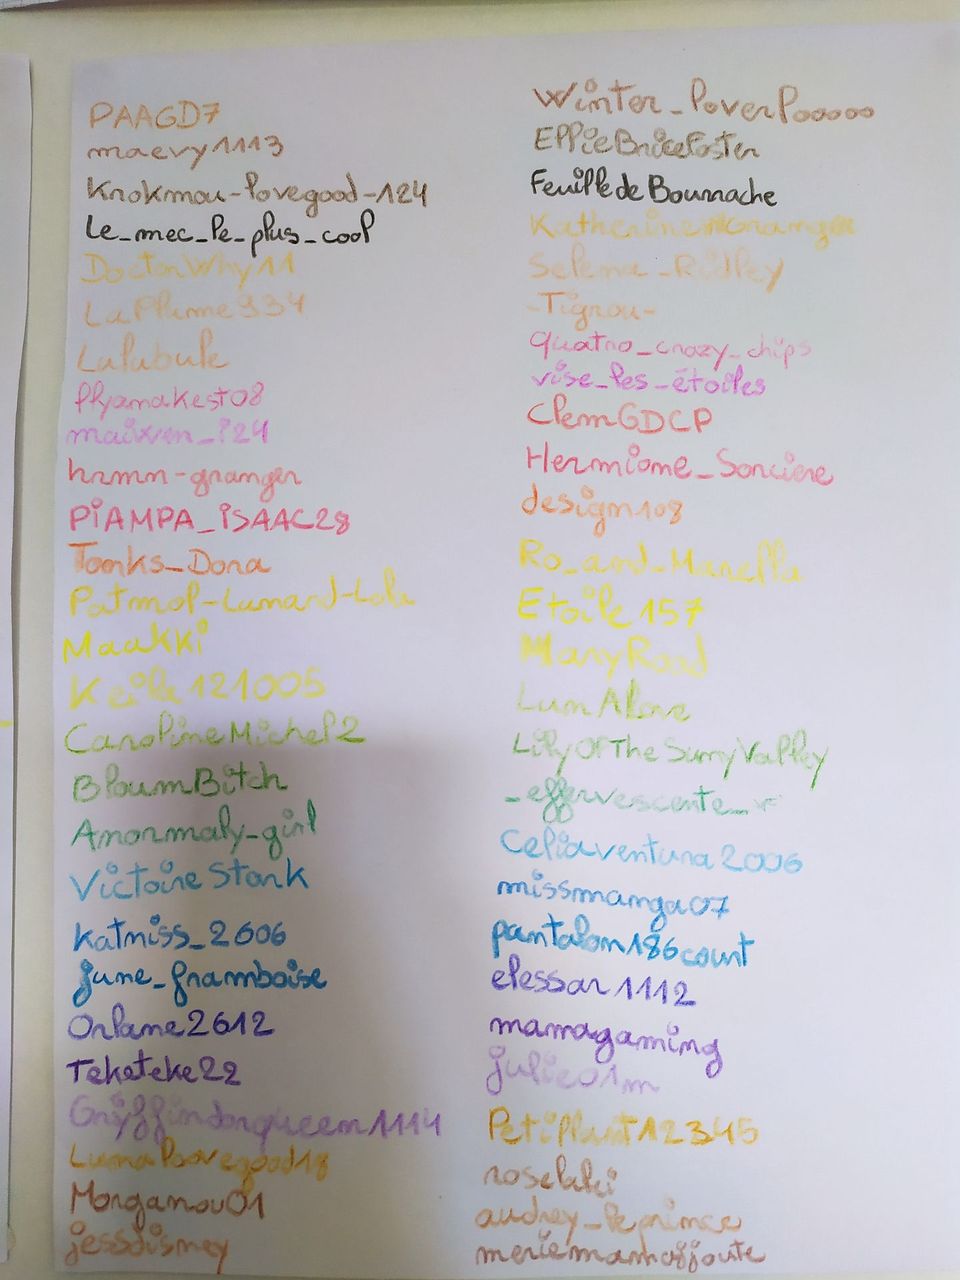 PAAGD7
maevy1113
Knokmou-lovegood-124
Le_mec_le_plus_cool
DoctorWhy11
LaPlume934
Lulubule
llyanakest08
maixen_i24
hrmn-granger
PiAMPA_iSAAC28
Tonks_Dora
Patmol-Lunard-Lola
Maakki
Keila121005
CarolineMichel2
BloumBitch
Anormaly-girl
VictoireStark
katniss_2606
june_framboise
Orlane2612
Teketeke22
Gryffindorqueen1114
LunaLoovegood18
Morganou01
jessdisney
Winter_loverlooooo
EffieBriceFoster
FeuilledeBourrache
Katherine Granger
Selena_Ridley
-Tigrou-
quatro_crazy_chips
vise_les_étoiles
ClemGDCP
Hermione_Sorciere
design108
Ro_and_Marella
Etoile157
MaryRood
LunAlone
LilyOfTheSunnyValley
_effervescente_
Celiaventura2006
missmanga07
pantalon186count
elessar1112
mamagaming
julie01m
Petiplant12345
roselaki
audrey_leprince